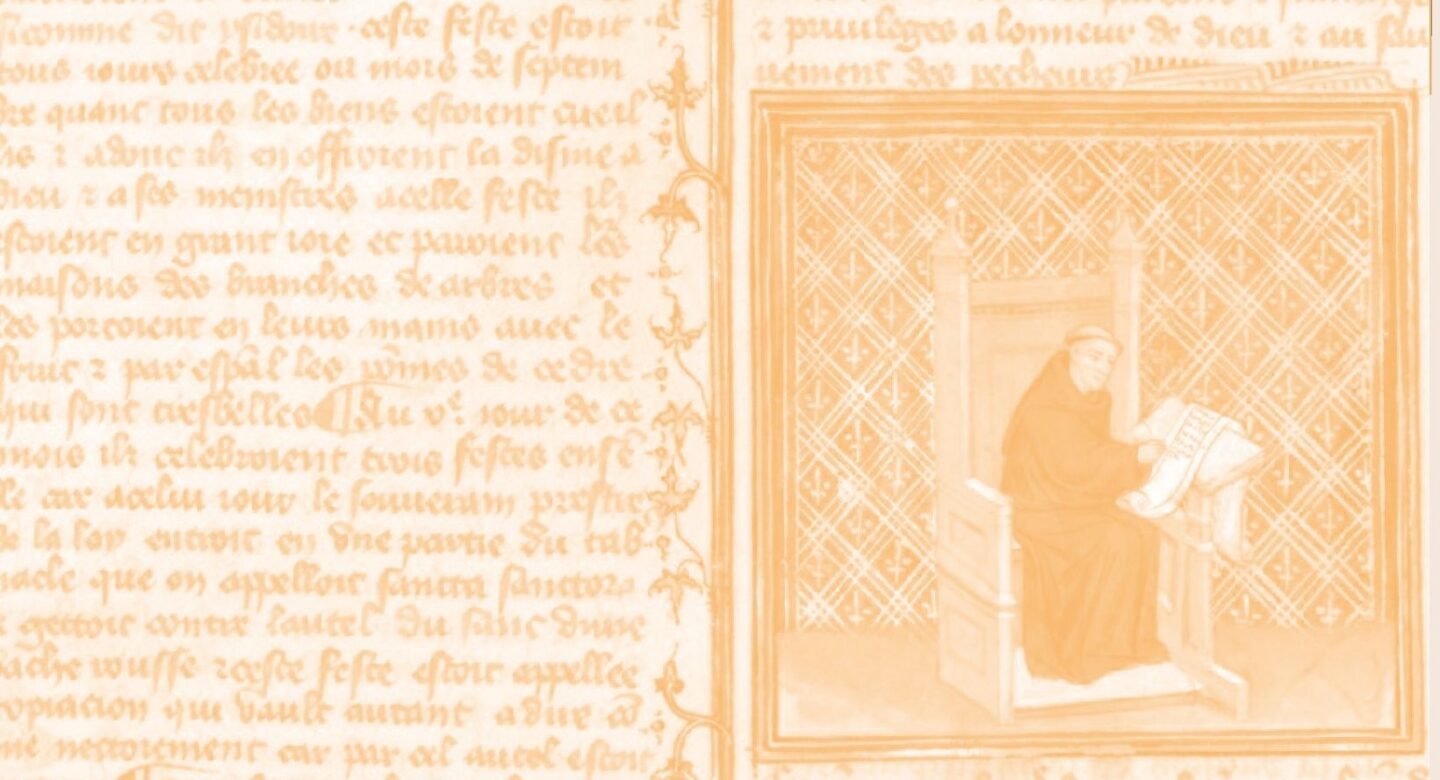 sicomme dit ysidore ceste feste estoit
tous iours celebree ou mois de septem
bre quant tous les biens estoient cueil
lis ⁊ adonc ilz en offroient la disme a
dieu ⁊ a ses menistres a celle feste ilz
estoient en grant ioie et paroient les
maisons des branches de arbres et
les portoient en leurs mains avec le
fruit ⁊ par esp̄al les pōmes de cedre
qui sont tresbelles ¶ Au ve iour de ce
mois ilz celebroient trois festes ensē
ble car a celui iour le souverain prestre
de la loy entroit en vne partie du tab
nacle que on appelloit sancta sanctorū
⁊ gettoit contre lautel du sanc dune
vache rousse ⁊ ceste feste estoit appellee
propiacion qui vault autant a dire cō
me nettoiement car par cel autel estoit
⁊ priuileges a lonneur de dieu ⁊ au sau
uement des pecheurs